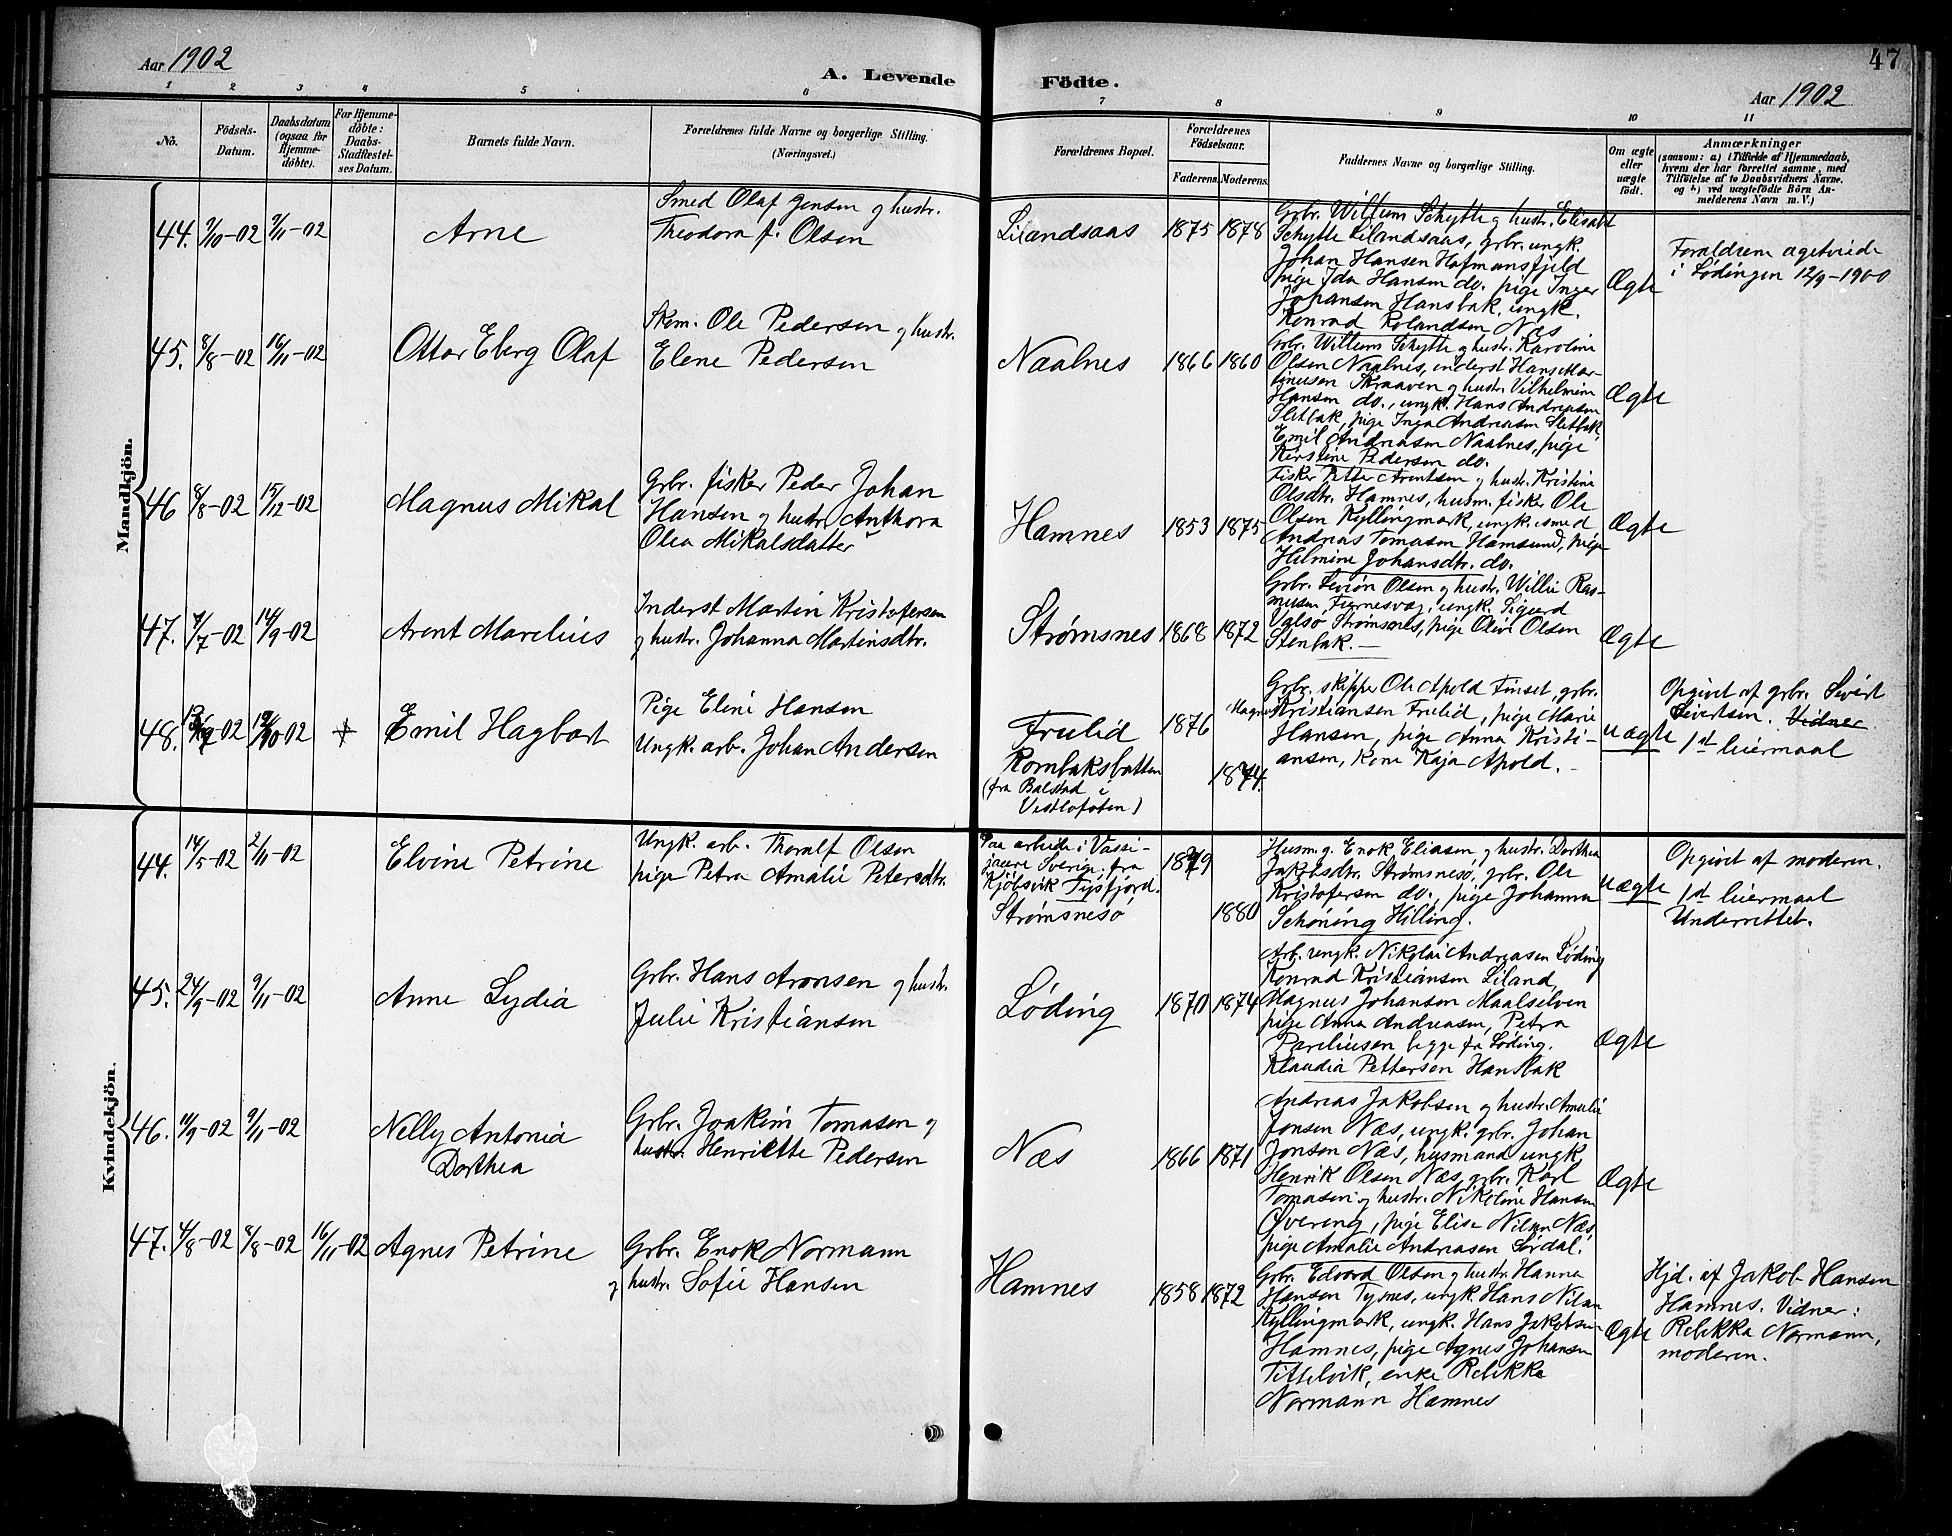 Aar 1902
A. Levende
Födte.
47
Aar 1902
1 2 3 4 5 6 7 8 9 10 11
No.
Födsels-
Datum.
Daabsdatum
(ogsaa för
Hjemme-
döbte).
For Hjemme-
döbte:
Daabs-
Stadfæstel-
ses Datum.
Barnets fulde Navn.
Forældrenes fulde Navne og borgerlige Stilling.
(Næringsvei.)
Forældrenes Bopæl.
Forældrenes
Födselsaar.
Faderens. Moderens.
Faddernes Navne og borgerlige Stilling.
Om ægte
eller
uægte
födt.
Anmærkninger
(saasom: a) i Tilfælde af Hjemmedaab,
hvem der har forrettet samme, med
Tilföielse af to Daabsvidners Navne,
og b) ved uægtefödte Börn An-
melderens Navn m. V.)
Mandkjön.
44. 9/10-02 9/11-02
Arne
Smed Olaf Jensen og hustr.
Theodora f. Olsen
Lilandsaas
1875 1878
Grbr. Willum Schytte og hustr. Elisabt
Schytte Lilandsaas, grbr. ungk.
Johan Hansen Hofmansfjeld
pige Ida Hansen do. pige Inger
Johansen Hansbak, ungk.
Konrad Rolandsen Næs
Ægte
Forældrene ægteviede
i Lødingen 12/9-1900
45. 8/8-02 16/11-02
Ottar Eberg Olaf
Skom. Ole Pedersen og hustr.
Elene Pedersen
Naalnes
1866 1860
Grbr. Willum Schytte og hustr. Karoline
Olsen Naalnes, inderst Hans Mar-
tinusen Skraaven og hustr. Vilhelmine
Hansen do., ungk. Hans Andreasen
Sletbak, pige Inga Andreasen Sletbak
Emil Andreasen Naalnes, pige
Kirstine Pedersen do.
Ægte
46 8/8-02 15/12-02
Magnus Mikal
Grbr. fisker Peder Johan
Hansen og hustr. Anthora
Olea Mikalsdatter
Hamnes
1853 1875
Fisker Petter Arentsen og hustr. Kristine
Olsdtr. Hamnes, husm. fisker Ole
Olsen Kyllingmark, ungk. smed
Andreas Tomasen Hamsund, pige
Helmine Johansdtr. do.
Ægte
47. 7/7-02 14/9-02
Arent Marelius
Inderst Martin Kristofersen
og hustr. Johanna Martinsdtr.
Strømsnes
1868 1872
Grbr. Olsen og hustr. Willie Ras-
musen ungk. Sigurd
Valsø Strømsnes, pige Olsen
Stenbak.—
Ægte
48. 02 02 +
Emil Hagbart
Pige Eline Hansen
Ungk. arb. Johan Andersen
Frulid
Rombaksbotten
(fra Balstad i
Vestlofoten)
1876
1874.
Grbr. skipper Ole Apold Finset, grbr.
Magnus Kristiansen Frulid, pige Marie
Hansen, pige Anna Kristi-
ansen, Kone Kaja Apold.
uægte
Opgivet af grbr. Sivert
Sivertsen. Vidner
1st leiermaal
Kvindekjön.
44. 14/5-02 2/11-02
Elvine Petrine
Ungk. arb. Thoralf Olsen
pige Petra Amalie Petersdtr.
Paa arbeide i Vassi-
jaure Sverige, fra
Kjöbsvik Tysfjord.
Strømsnesø
1879
1880
Husm. g. Enok Eliasen og hustr. Dorthea
Jakobsdtr. Strømsnesø, grbr. Ole
Kristofersen do., pige Johanna
Schöning Hilling.
uægte
Opgivet af moderen.
1st leiermaal
Underrettet.
45. 24/9-02 9/11-02
Anne Lydia
Grbr. Hans Aronsen og hustr.
Julie Kristiansen
Løding
1870 1874
Arb. ungk. Nikolai Andreasen Løding
Konrad Kristiansen Liland,
Magnus Johansen Maalselven
pige Anna Andreasen, Petra
Pareliusen begge fra Løding.
Klaudia Pettersen Hansbak
Ægte
46. 11/9-02 9/11-02
Nelly Antonia
Dorthea
Grbr. Joakim Tomasen og
hustr. Henriette Pedersen
Næs
1866 1871
Andreas Jakobsen og hustr. Amalie
Jensen Næs, ungk. grbr. Johan
Jensen Næs, husmand ungk.
Henrik Olsen Næs, grbr. Karl
Tomasen og hustr. Nikoline Hansen
Øvereng, pige Elise Nilsen Næs,
pige Amalie Andreasen Sørdal.
Ægte
47. 4/8-02 8/8-02 16/11-02
Agnes Petrine
Grbr. Enok Normann
og hustr. Sofie Hansen
Hamnes
1858 1872
Grbr. Edvard Olsen og hustr. Hanna
Hansen Tysnes, ungk. Hans Nilsen
Kyllingmark, ungk. Hans Jakobsen
Hamnes, pige Agnes Johansen
Tittelvik, enke Rebekka
Normann Hamnes
Ægte
Hjd. af Jakob Hansen
Hamnes. Vidner:
Rebekka Normann,
moderen.